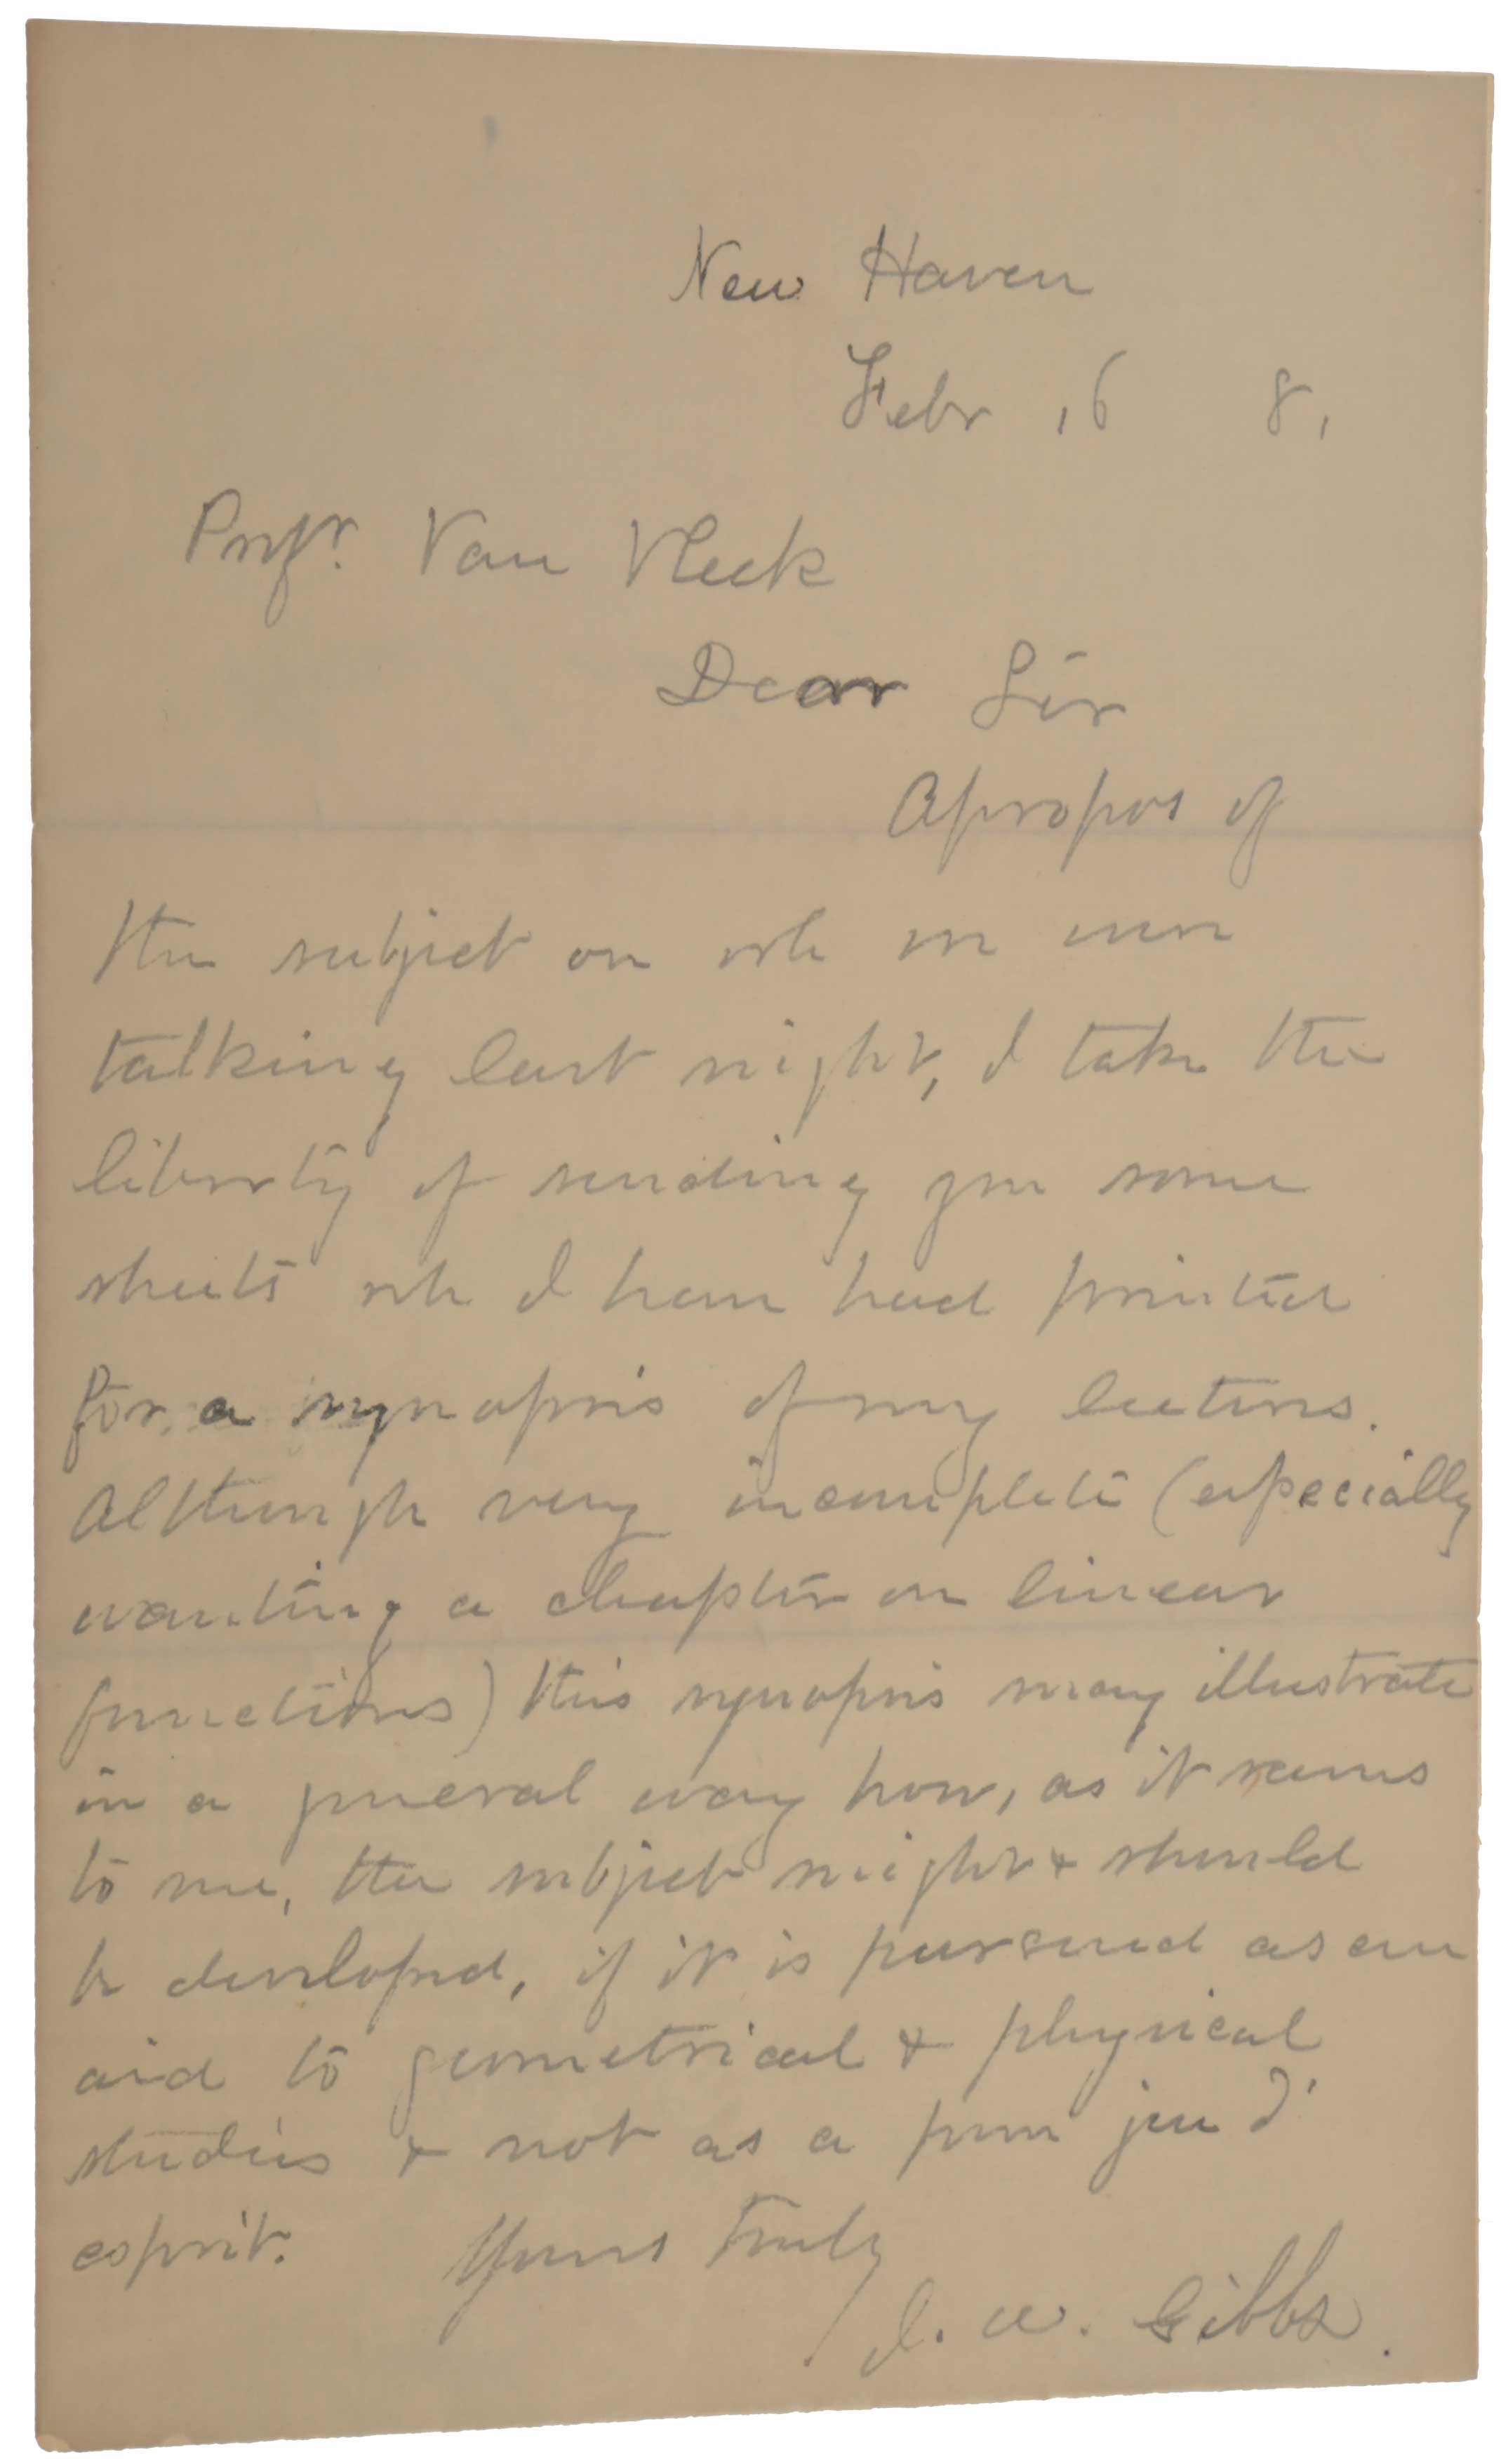 New Haven
Febr 16 81
Profr. Van Vleck
Dear Sir
Apropos of
the subject on wh we were
talking last night, I take the
liberty of sending you some
sheets wh I have had printed
for a synopsis of my lectures.
Although very incomplete (especially
wanting a chapter on linear
functions) this synopsis may illustrate
in a general way how, as it seems
to me, the subject might & should
be developed, if it is pursued as an
aid to geometrical & physical
studies & not as a pure jeu d'
esprit. Yours truly
J. W. Gibbs.